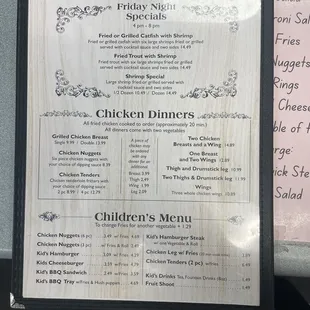 Friday Night
Specials
4 pm - 8 pm
Fried or Grilled Catfish with Shrimp
Fried or grilled catfish with six large shrimps fried or grilled
served with cocktail sauce and two sides 14.49
Fried Trout with Shrimp
Fried trout with six large shrimps fried or grilled
served with cocktail sauce and two sides 14.49
Shrimp Special
Large shrimp fried or grilled served with
cocktail sauce and two sides
1/2 Dozen 10.49 Dozen 14.49
Chicken Dinners
All fried chicken cooked to order (approximately 20 min.)
All dinners come with two vegetables
Grilled Chicken Breast
Single 9.99 / Double 13.99
Chicken Nuggets
Six piece chicken nuggets with
your choice of dipping sauce 8.99
Chicken Tenders
Chicken tenderloins fritters with
your choice of dipping sauce
2 pc 8.99 / 4 pc 12.99
A piece of
chicken
may be
ordered
with any
dinner for
an extra
charge
Breast 3.99
Thigh 2.49
Wing 1.99
Leg 2.09
Two Chicken
Breasts and a Wing 14.99
One Breast
and Two Wings 12.99
Thigh and Drumstick leg
Two Thighs & Drumstick leg
Wings
Three whole chicken wings
Children's Menu
To change Fries for another vegetable + 1.29
Chicken Nuggets w/ Fries
Chicken Nuggets w/ Fries & Roll
Kid's Hamburger w/Fries
Kids Cheeseburger w/Fries
Kid's BBQ Sandwich w/ Fries
Kid's BBQ Tray w/Fries & Hush puppies
Kid's Hamburger Steak
w/ one Vegetable & Roll
Chicken Leg w/ Fries
Chicken Tenders (2 pc) w/ Fries
Kid's Drinks Tea, Fountain Drinks
Fruit Shoot
Fries
Nuggets
Rings
Cheese
Salad